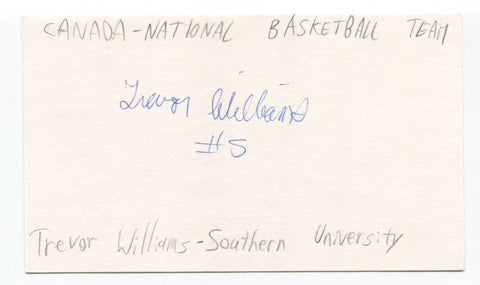 CANADA-NATIONAL BASKETBALL TEAM
Trevor Williams
#5
Trevor Williams-Southern University